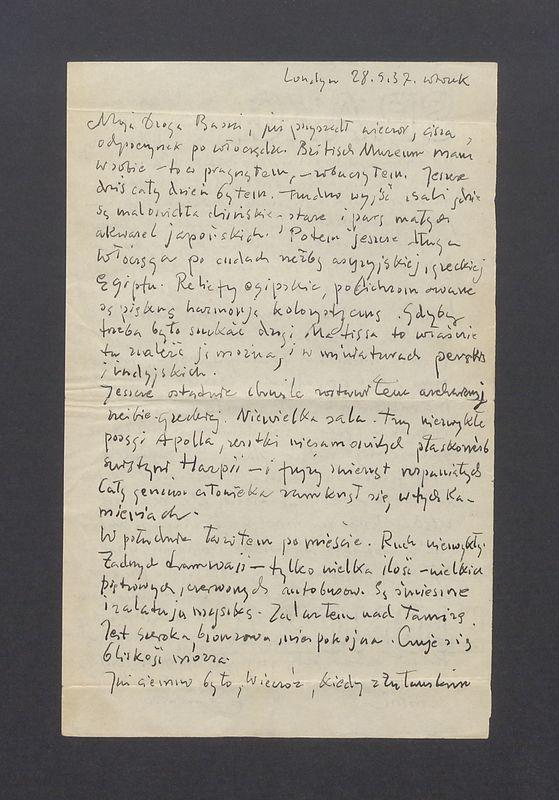 Londyn 28.9.37. wtorek
Moja Droga Basiu, już przyszedł wieczór, cisza,
odpoczynek po włóczędze. British Muzeum mam
w sobie – to co pragnąłem, – zobaczyłem. Jeszcze
dziś cały dzień byłem. Trudno wyjść z sali gdzie
są malowidła chińskie stare i parę małych
akwarel japońskich. Potem jeszcze długa
włóczęga po cudach rzeźby asyryjskiej, greckiej
Egiptu. Reliefy egipskie, polichromowane
są piękną harmonją kolorystyczną. Gdyby
trzeba było szukać drogi Matissa to właśnie
tu znaleźć ją można, i w miniaturach perskich
i indyjskich.
Jeszcze ostatnie chwile zostawiłem archaicznej
rzeźbie greckiej. Niewielka sala. Trzy niezwykłe
posągi Apolla, resztki niesamowitych płaskorzeźb
świątyni Harpii – i fryzy zwierząt wspaniałych
Cały geniusz człowieka zamknął się w tych ka-
mieniach.
W południe łaziłem po mieście. Ruch niezwykły.
Żadnych tramwaji – tylko wielka ilość – wielkich
piętrowych, czerwonych autobusów. Są śmieszne
i zalatują wsią. Zalazłem nad Tamizę.
Jest szeroka bronzowa, niespokojna. Czuje się
bliskość morza.
Już ciemno było, wieczór, kiedy z Żuławskim